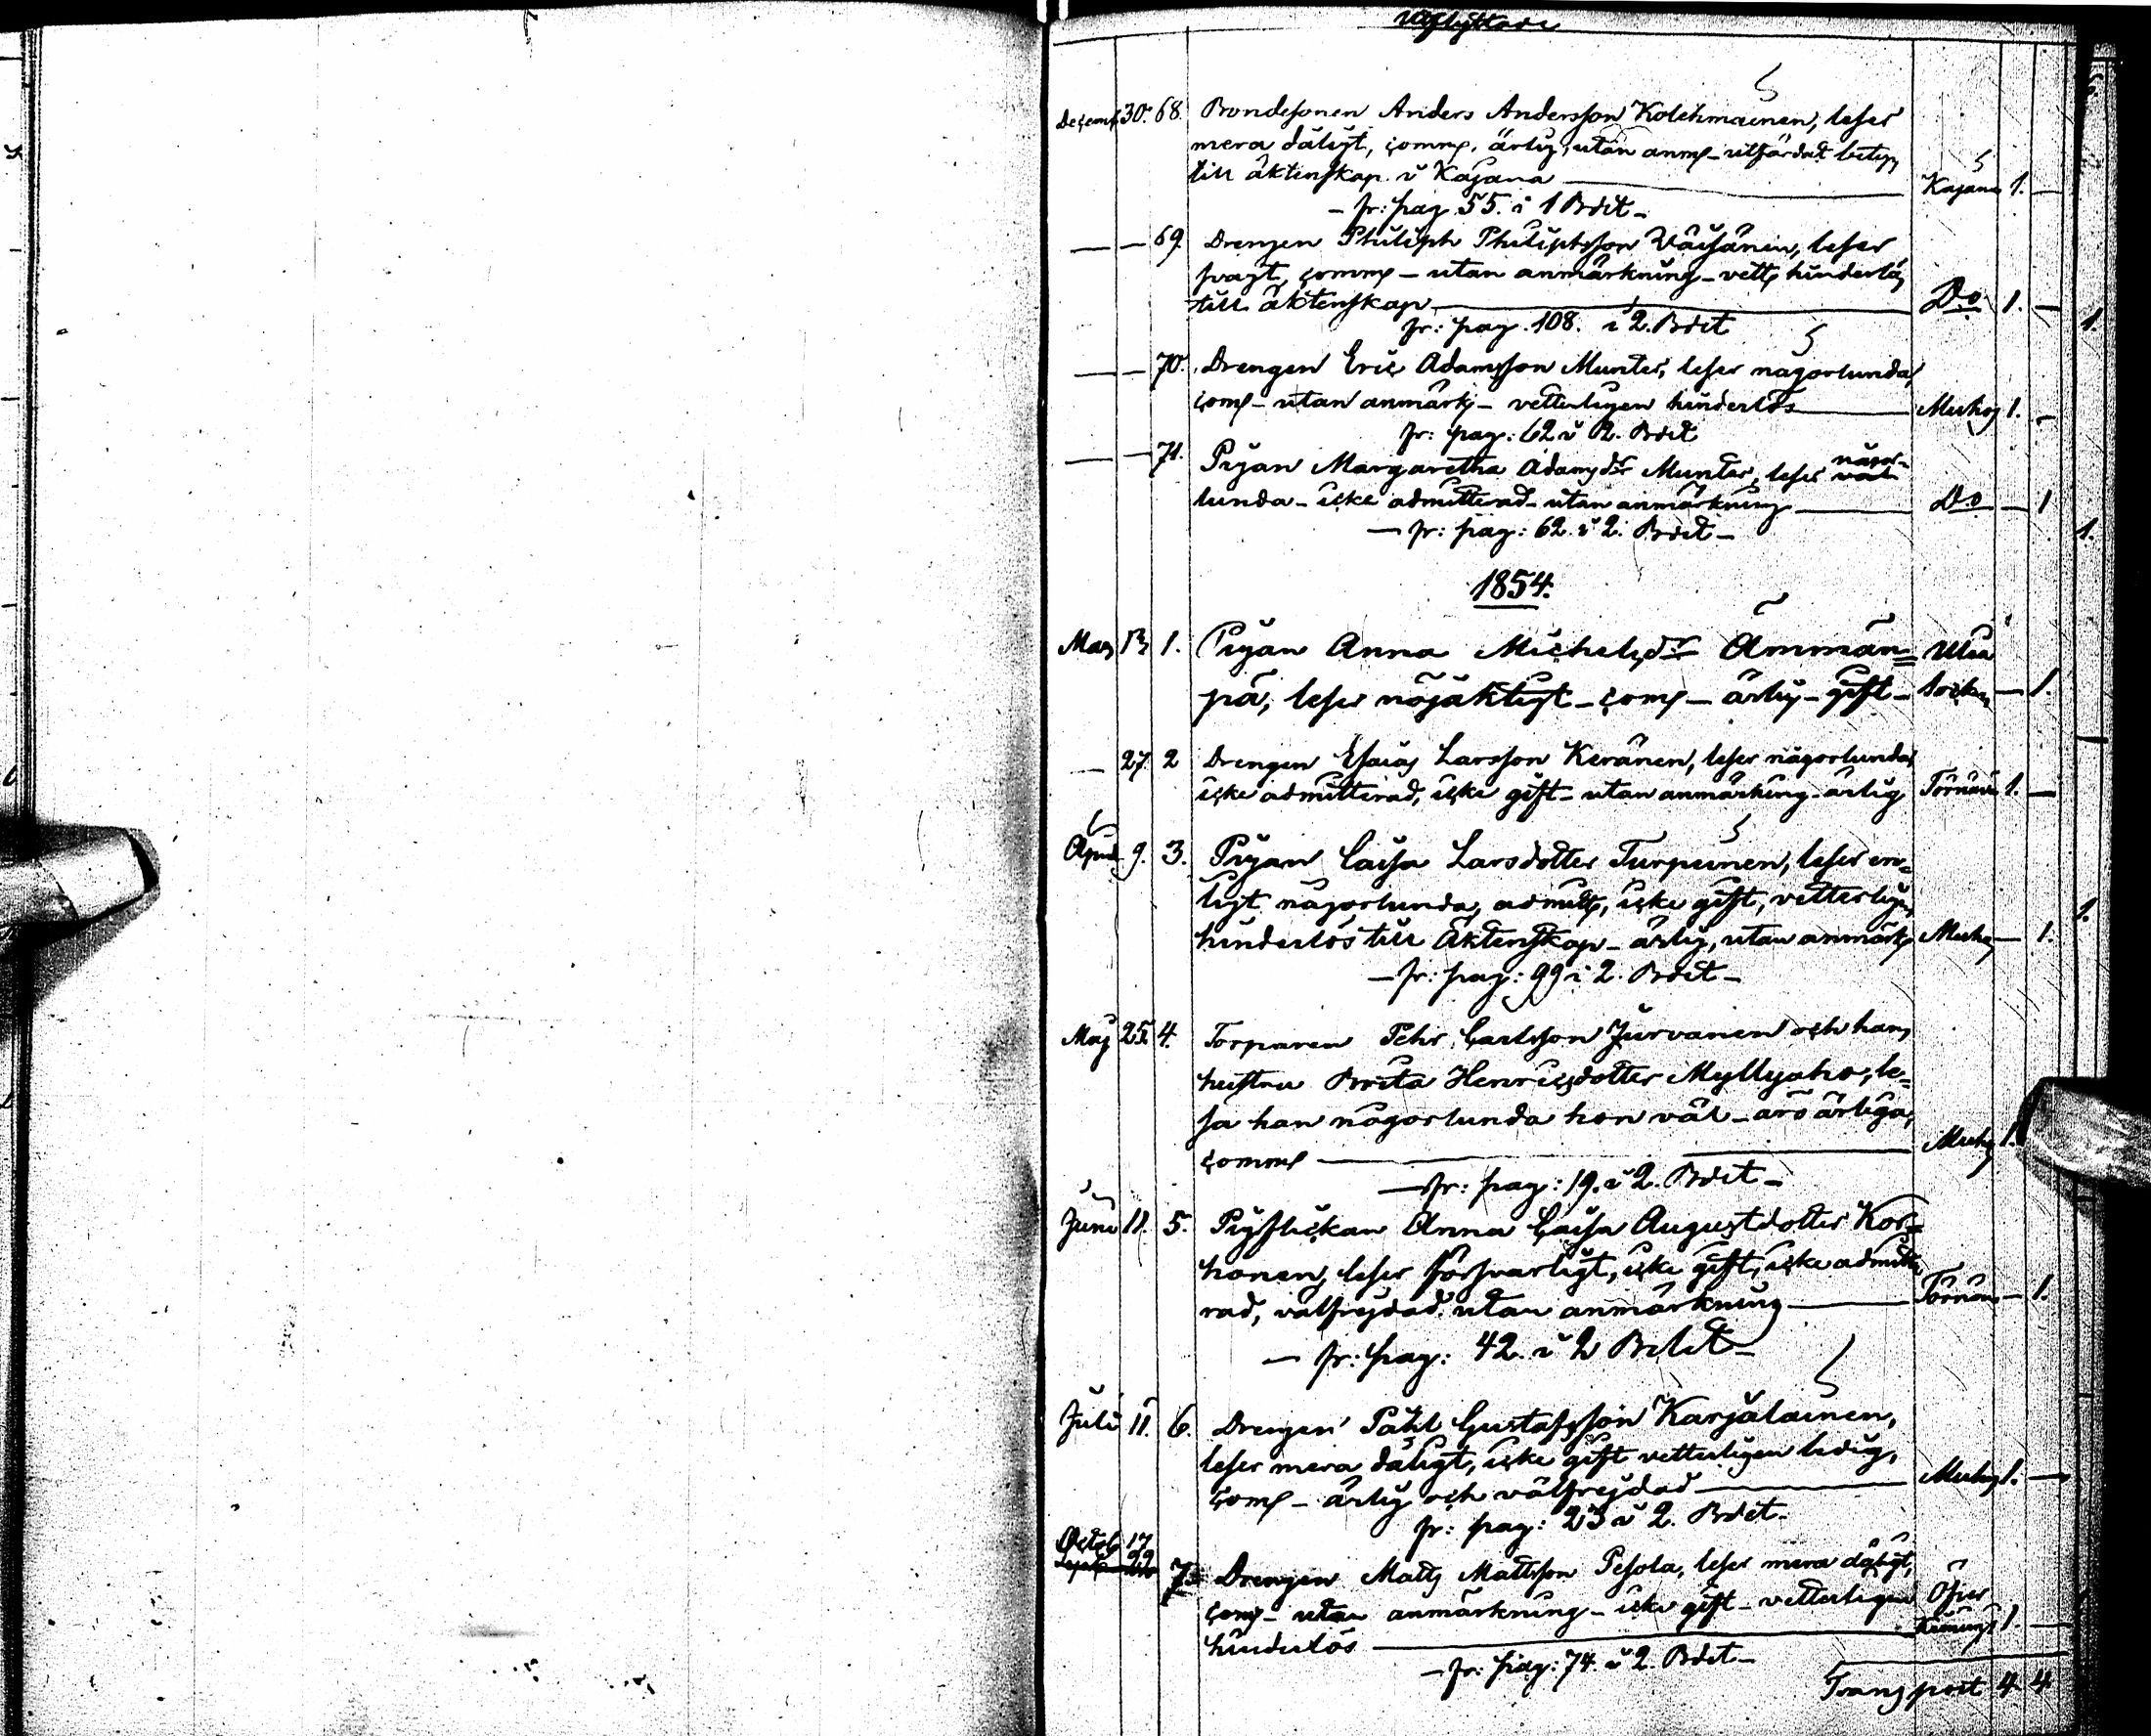 Utflyttade
Decemb 30. 68. Bondesonen Anders Andersson Kolehmainen, läser
mera dåligt, comm. ärlig, utan anm- utfärdat betyg
till äktenskap i Kajana Kajana 1. —
- fr: pag. 55. i 1 Bdet -
— — 69. Drengen Philiph Philiphsson Väisänen, läser
svagt, comm - utan anmärkning - vett. hinderlös
till äktenskap Do 1. —
fr: pag. 108. i 2. Bdet 1.
— — 70. Drengen Eric Adamsson Munter, läser någorlunda,
com - utan anmärk - vetterligen hinderlös Muhos 1. -
fr: pag: 62 i 2. Bdet
— — 71. Pigan Margaretha Adamsdr Munter, läser någor-
lunda - icke admitterad - utan anmärkning Do — 1
- fr: pag: 62. i 2. Bdet - 1.
1854.
Mars 13 1. Pigan Anna Michelsdr Ämmän= Uleå
pä, läser nöjaktigt - com - ärlig - gift - Socken — 1.
— 27. 2 Drengen Esaias Larsson Keränen, läser någorlunda,
icke admitterad, icke gift - utan anmärkning - ärlig 1. —
April 9. 3. Pigan Caisa Larsdotter Turpeinen, läser en=
ligt någorlunda, admitt, icke gift, vetterligen
hinderlös till äktenskap - ärlig, utan anmärk Muhos — 1. 1.
- fr: pag: 99 i 2. Bdet -
Maj 25. 4. Torparen Pehr Carlsson Jurvanen och hans
hustru Brita Henricsdotter Myllyaho, lä=
sa han någorlunda hon väl - äro ärliga,
comm Muhos 1.
- fr: pag: 19. i 2. Bdet -
Juni 11. 5. Pigflickan Anna Caisa Augustdotter Kor=
honen, läser försvarligt, icke gift, icke admitte
rad, välfrejdad utan anmärkning — 1.
- fr: pag: 42. i 2 Bdet -
Juli 11. 6. Drengen Påhl Gustafsson Karjalainen,
läser mera dåligt, icke gift vetterligen ledig,
com - ärlig och välfrejdad Muhos 1. —
fr: pag: 23 i 2. Bdet -
Octob 17
22 7. Drengen Matts Mattsson Pesola, läser mera dåligt,
com - utan anmärkning - icke gift - vetterligen Öfver
hinderlös Kiminge 1. —
- fr: pag: 74. i 2. Bdet -
Transport 4. 4.